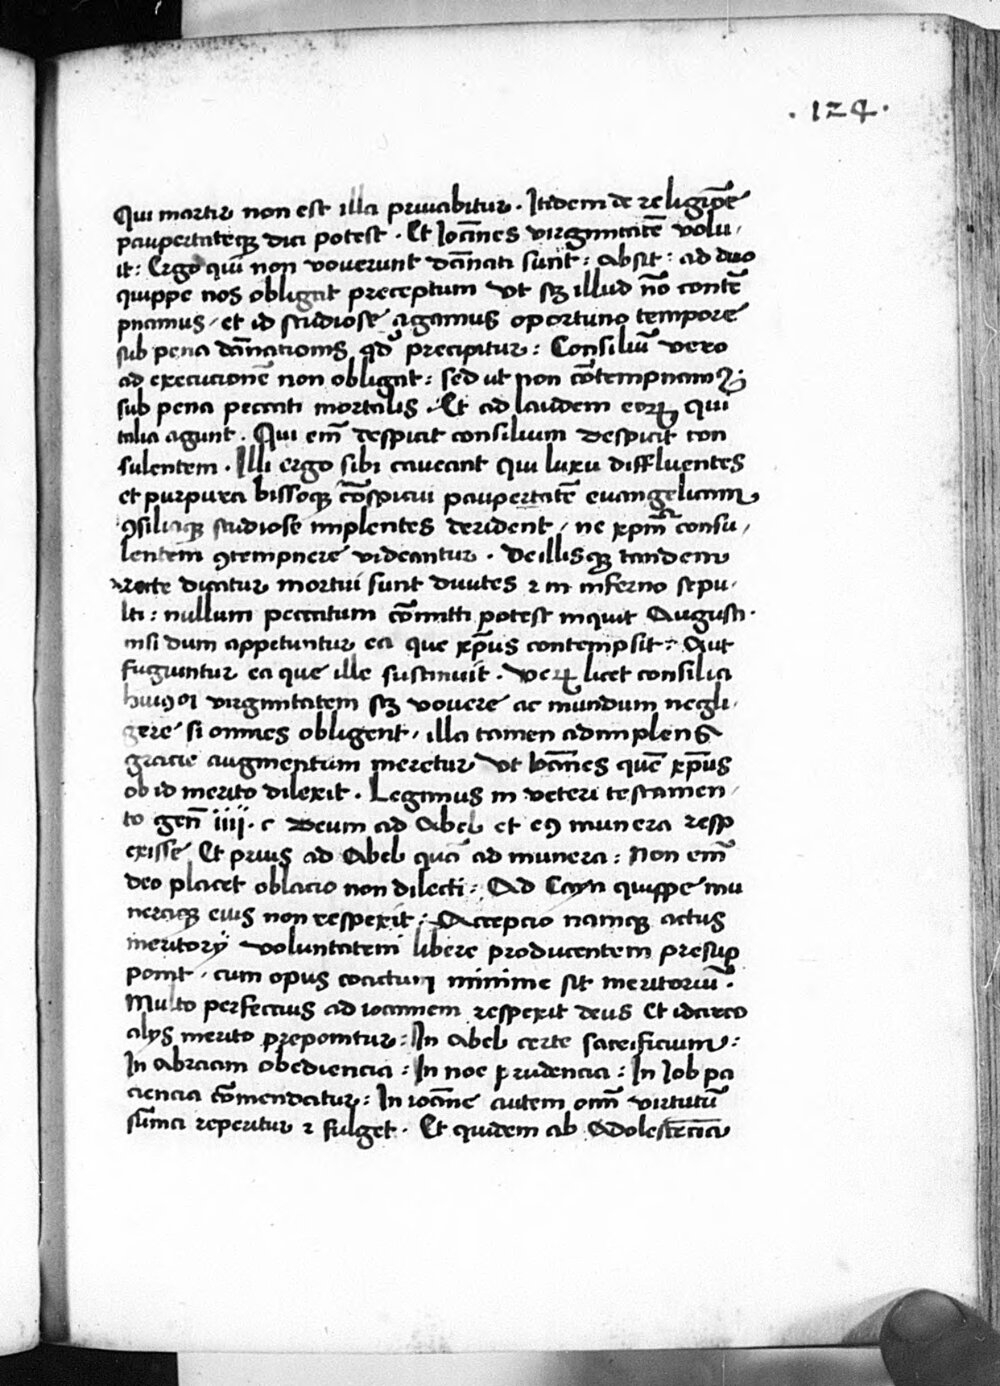 · 124 ·
Qui martir non est illa priuabitur · Itidem de religiōe
paupertateqꝫ dici potest · Et Ioānes virginitatē volu,
it: Ergo qui non vouerunt dānati sunt: Absit: ad duo
quippe nos obligat preceptum vt sꝫ illud nō contē
pnamus, et id studiose agamus oportuno tempore
sub pena dānationis qd̕ precipitur: Consiliū vero
ad execucionē non obligat: sed ut non cōtempnamꝰ:
sub pena peccati mortalis · Et ad laudem eoꝝ qui
talia agunt · Qui em̄ despicit consilium despicit con
sulentem · Illi ergo sibi caueant qui luxu diffluentes
et purpura bissoqꝫ cōspicui paupertatē euangelicam
ꝯsiliaqꝫ studiose implentes derident, ne xp̄m consu,
lentem ꝯtempnere videantur · De illisqꝫ tandem
recte dicatur mortui sunt diuites ꝛ in inferno sepu,
lti: nullum peccatum cōmitti potest inquit Augusti·
nisi dum appetuntur ea que xp̄us contempsit: Aut
fugiuntur ea que ille sustinuit · Veꝝ licet consilia
huiꝰoi virginitatem sꝫ vouere ac mundum negli,
gere si omnes obligent, illa tamen adimplens
gracie augmentum meretur vt Ioānes quē xp̄us
ob id merito dilexit · Legimus in veteri testamen,
to gen̄ iiii · c Deum ad Abel et eꝰ munera resp
exisse Et prius ad Abel quā ad munera: Non em̄
deo placet oblacio non dilecti: Ad Cayn quippe mu
neraqꝫ eius non respexit: Accepcio namqꝫ actus
meritorÿ voluntatem libere producentem presup
ponit, cum opus coactum minime sit meritoriū ·
Multo perfectius ad ioannem respexit deus Et idcirco
alys merito preponitur: In Abel certe sacrificium:
In Abraam obediencia: In noe prudencia: In Iob pa
ciencia cōmendatur: In ioāne autem om̄ virtutū
sūma reperitur ꝛ fulget · Et quidem ab Adolescēcia